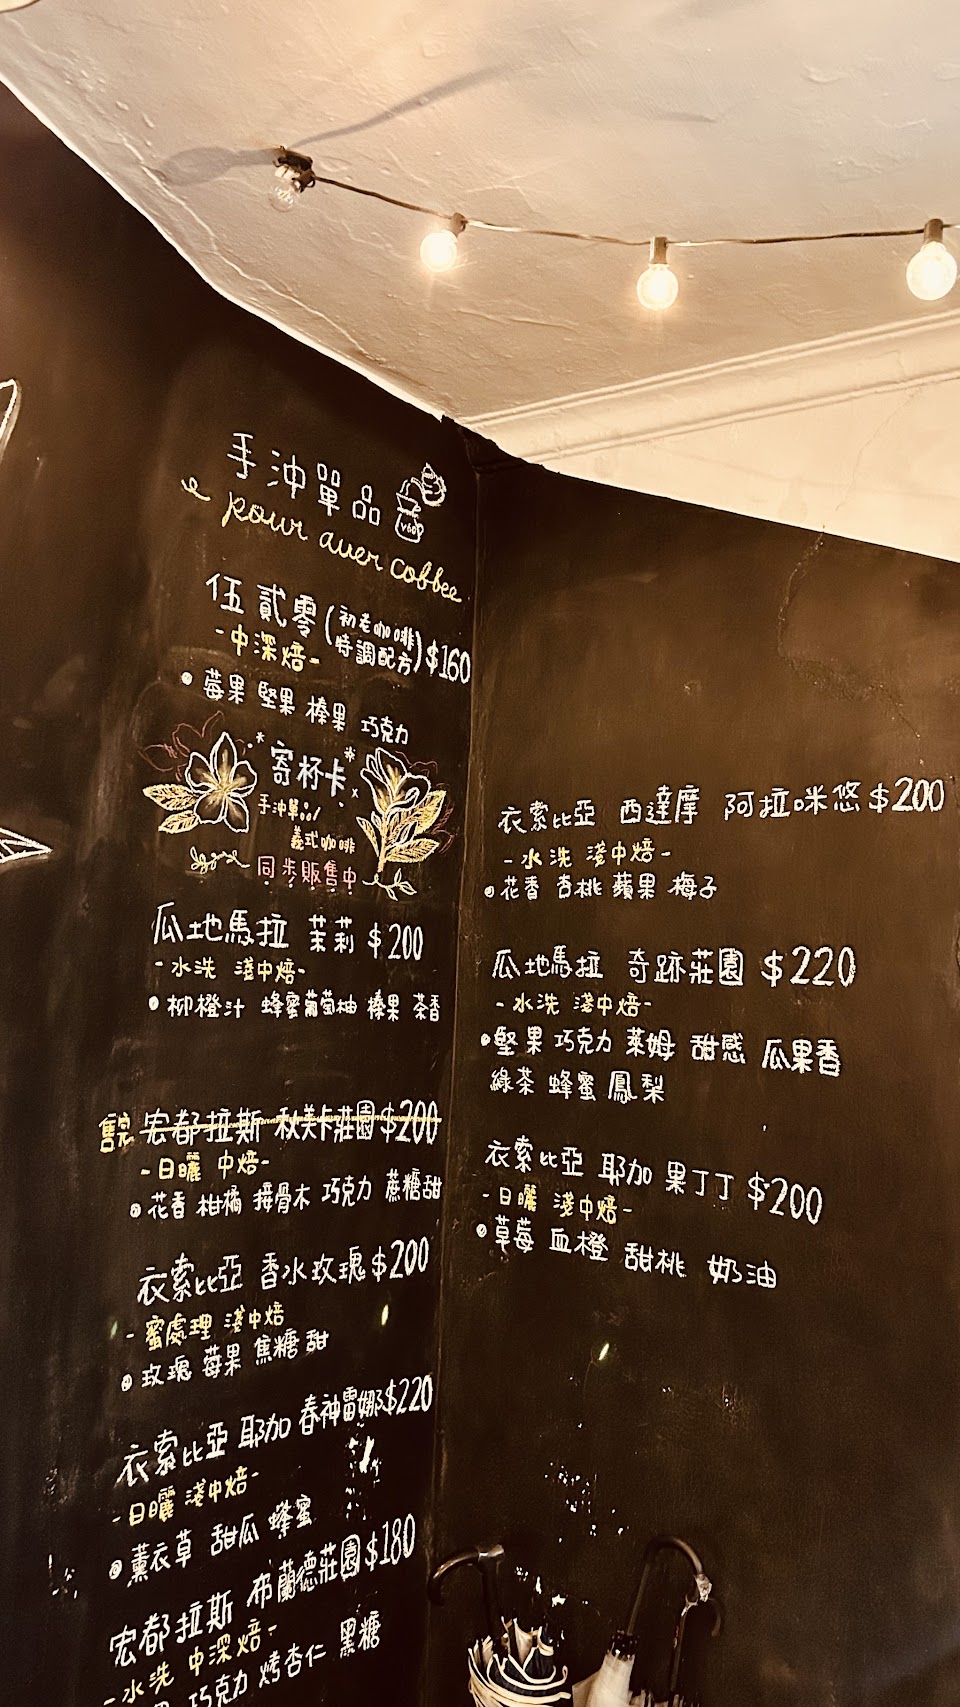 手沖單品
V60
pour over coffee
伍貳零(初老咖啡特調配方)$160
-中深焙-
莓果 堅果 榛果 巧克力
寄杯卡
手沖單品/
義式咖啡
同步販售中
瓜地馬拉 茉莉 $200
-水洗 淺中焙-
柳橙汁 蜂蜜葡萄柚 榛果 茶香
售完 宏都拉斯 秋美卡莊園 $200
-日曬 中焙-
花香 柑橘 接骨木 巧克力 蔗糖甜
衣索比亞 香水玫瑰 $200
-蜜處理 淺中焙
玫瑰 莓果 焦糖甜
衣索比亞 耶加 春神雷娜 $220
-日曬 淺中焙-
薰衣草 甜瓜 蜂蜜
宏都拉斯 布蘭德莊園 $180
-水洗 中深焙-
巧克力 烤杏仁 黑糖
衣索比亞 西達摩 阿拉咪悠 $200
-水洗 淺中焙-
花香 杏桃 蘋果 梅子
瓜地馬拉 奇跡莊園 $220
-水洗 淺中焙-
堅果 巧克力 萊姆 甜感 瓜果香
綠茶 蜂蜜 鳳梨
衣索比亞 耶加 果丁丁 $200
-日曬 淺中焙-
草莓 血橙 甜桃 奶油